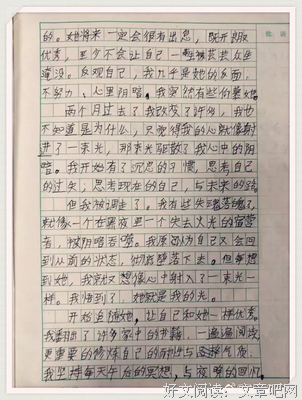 的。她将来一定会很有出息，既开朗
优秀，至少不会让自己一生被芸芸众生
淹没。反观自己，我几乎是她的反面，
不努力、心里阴暗。我突然有些仰慕她。
两个月过去了我改变了许多，我也
不知道是为什么，只觉得我的心就像射
进了一束光，那束光驱散了我心中的阴
暗。我开始有了沉思的习惯，思考自己
的过失，思考现在的自己，与未来的路
但我被调走了。我有些失魂落魄了，
就像一个在黑夜里一个失去火光的宿营
者，被阴暗吞噬。我原以为自己又会回
到从前的状态，彻底堕落下去。但每想
到她，我就想像心中射入了一束光一
样。我悟到了，她就是我的光。
开始追随她，让自己和她一样优秀。
我翻出了许多家中的书籍，一遍遍阅读
更重要的修炼自己的 与 气质。
我坚持每天午后的冥想，与夜晚的回忆
好文阅读：文章吧网